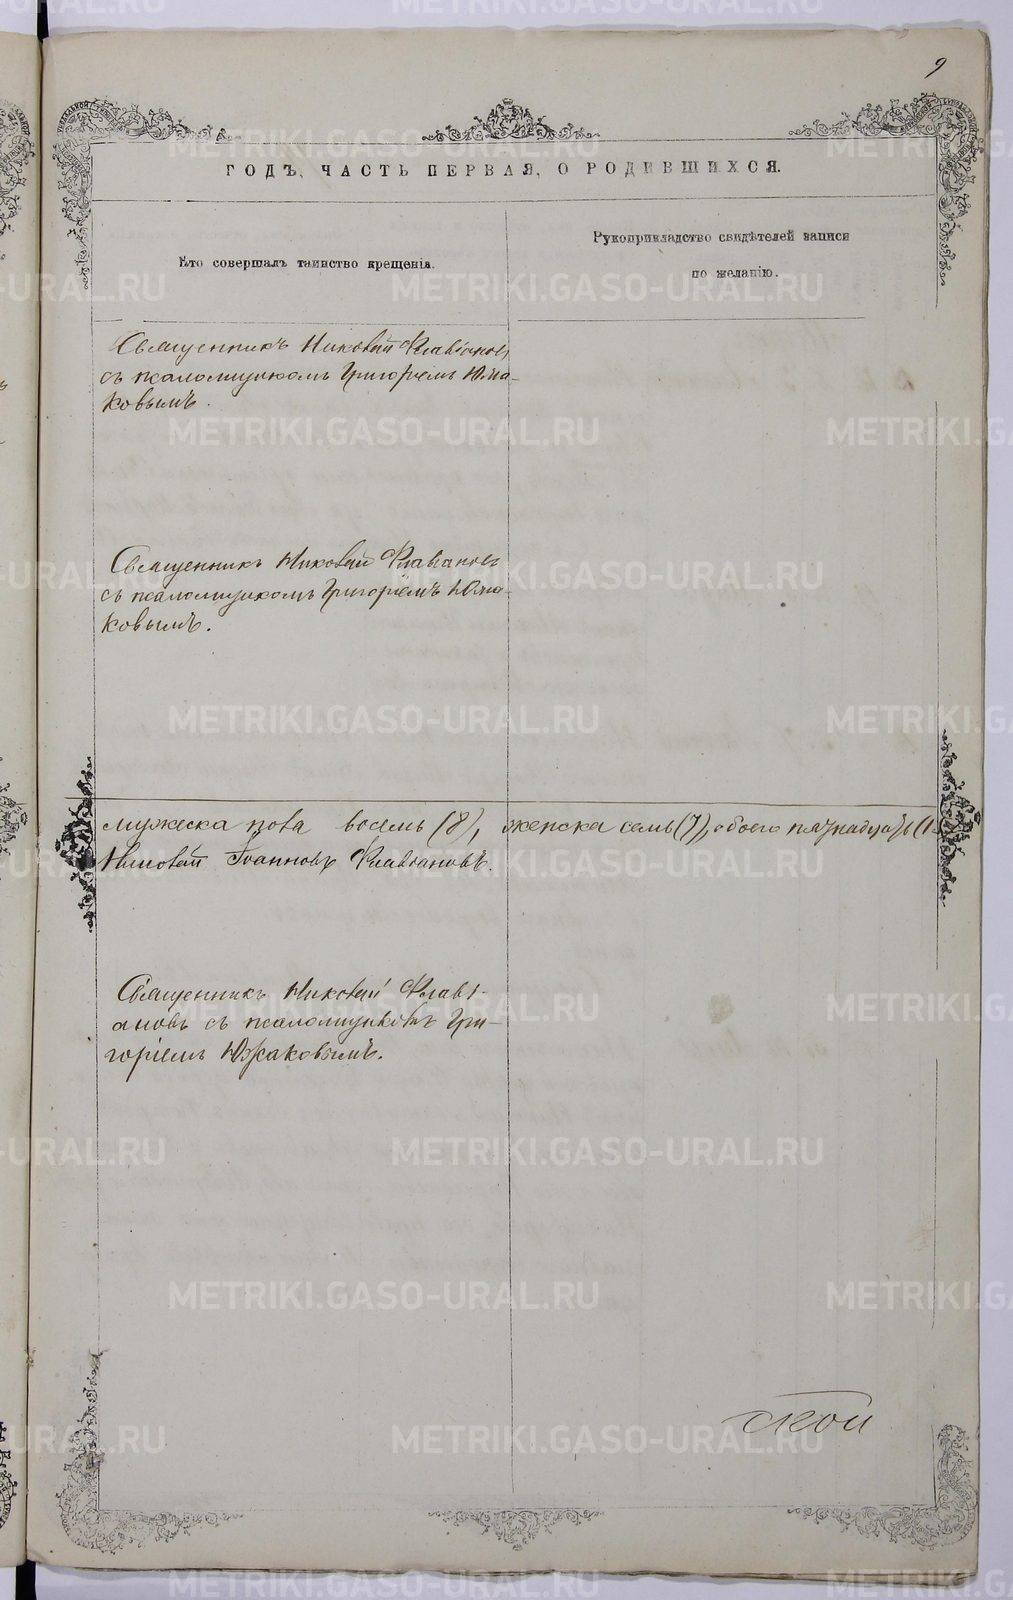 9
ГОДЪ, ЧАСТЬ ПЕРВАЯ, О РОДИВШИХСЯ.
Кто совершалъ таинство крещенія.
Рукоприкладство свидѣтелей записи
по желанію.
Священникъ Николай Флавіановъ
съ псаломщикомъ Григоріемъ Южа-
ковымъ.
Священникъ Николай Флавіановъ
съ псаломщикомъ Григоріемъ Южа-
ковымъ.
мужеска пола восемь (8), женска семь (7), обоего пятнадцать (1
Николай Іоанновъ Флавіановъ.
Священникъ Николай Флаві-
ановъ съ псаломщикомъ Гри-
горіемъ Южаковымъ.
METRIKI.GASO-URAL.RU